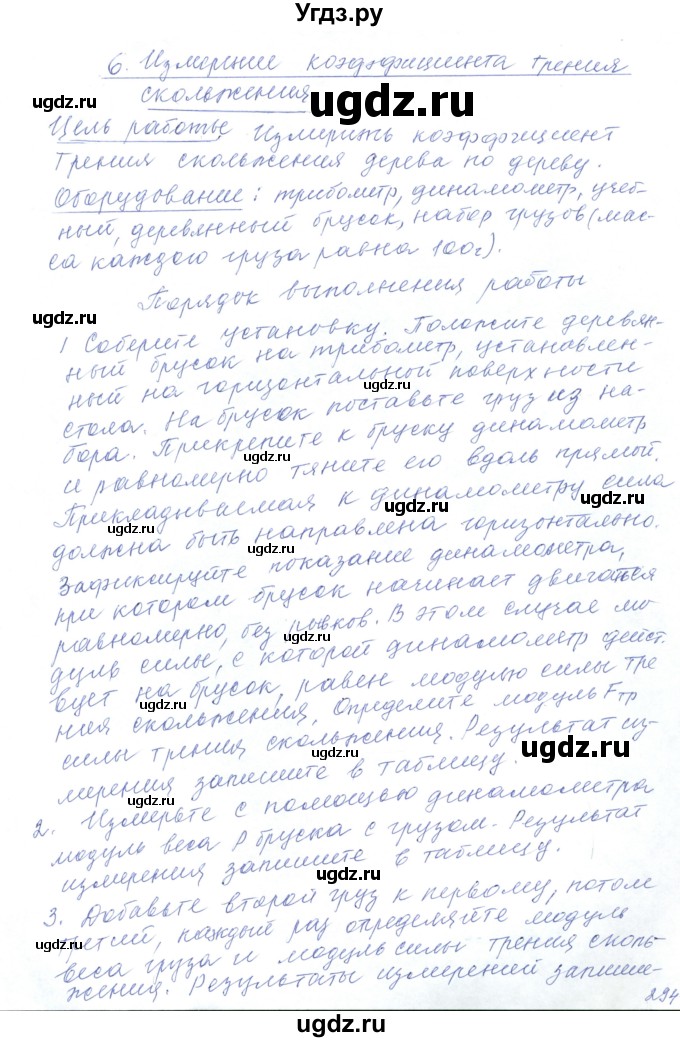 Угдз.ру
6. Измерение коэффициента трения
скольжения
ugdz.ru
Цель работы: Измерить коэффициент
ugdz.ru
трения скольжения дерева по дереву.
Оборудование: трибометр, динамометр, учеб-
ный, деревянный брусок, набор грузов (мас-
са каждого груза равна 100г).
Порядок выполнения работы
ugdz.ru
1 Соберите установку. Положите деревян-
ный брусок на трибометр, установлен-
ный на горизонтальной поверхности
ugdz.ru
стола. На брусок поставьте груз из на-
бора. Прикрепите к бруску динамометр
ugdz.ru
и равномерно тяните его вдоль прямой.
Прикладываемая к динамометру сила
ugdz.ru
ugdz.ru
должна быть направлена горизонтально.
ugdz.ru
Зафиксируйте показание динамометра,
при котором брусок начинает двигаться
равномерно, без рывков. В этом случае мо-
ugdz.ru
дуль силы, с которой динамометр дейст.
вует на брусок, равен модулю силы тре
ния скольжения. Определите модуль Fтр
силы трения скольжения. Результат из-
ugdz.ru
мерения запишите в таблицу.
ugdz.ru
2. Измерьте с помощью динамометра
модуль веса P бруска с грузом. Результат
ugdz.ru
измерения запишите в таблицу.
3. Добавьте второй груз к первому, потом
ugdz.ru
третий, каждый раз определяйте модуль
веса груза и модуль силы трения сколь-
жения. Результаты измерений запиши-
294
ugdz.ru